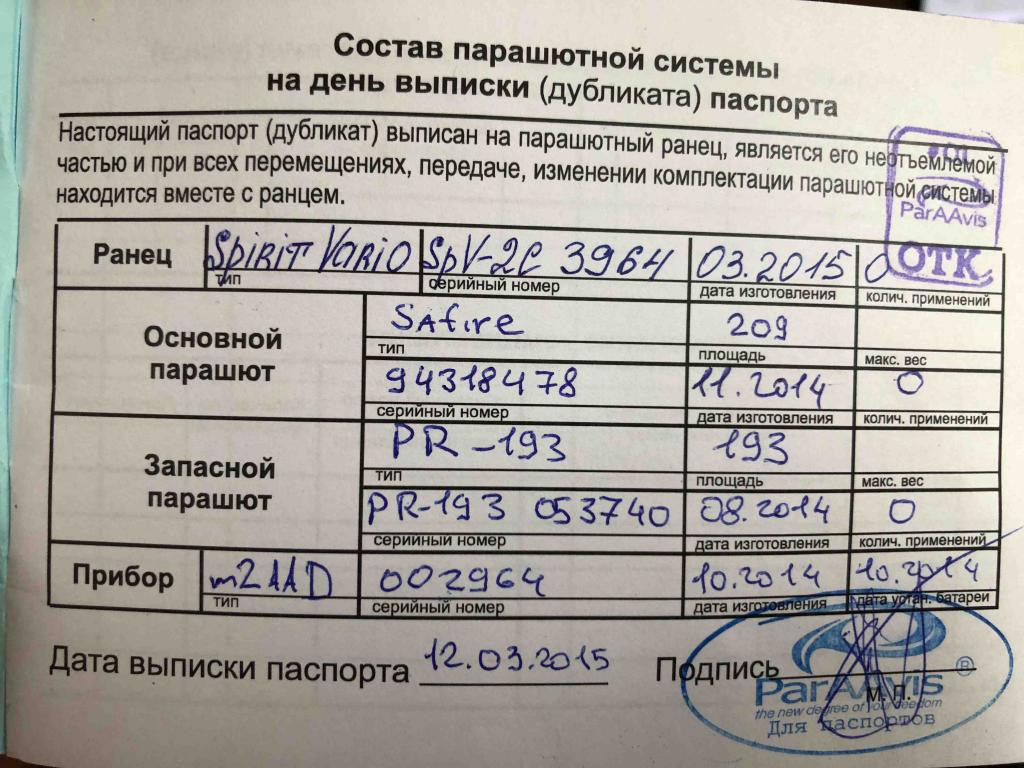 Состав парашютной системы
на день выписки (дубликата) паспорта
Настоящий паспорт (дубликат) выписан на парашютный ранец, является его неотъемлемой
частью и при всех перемещениях, передаче, изменении комплектации парашютной системы
находится вместе с ранцем.
ParAAvis
ОТК
Ранец Spirit Vario SpV-2C 3964 03.2015 0
тип серийный номер дата изготовления колич. применений
Основной парашют
Safire 209
тип площадь макс. вес
94318478 11.2014 0
серийный номер дата изготовления колич. применений
Запасной парашют
PR-193 193
тип площадь макс. вес
PR-193 053740 08.2014 0
серийный номер дата изготовления колич. применений
Прибор m2 AAD 002964 10.2014 10.2014
тип серийный номер дата изготовления дата устан. батареи
Дата выписки паспорта 12.03.2015 Подпись
М.П.
ParAAvis ®
the new degree of your freedom
Для паспортов